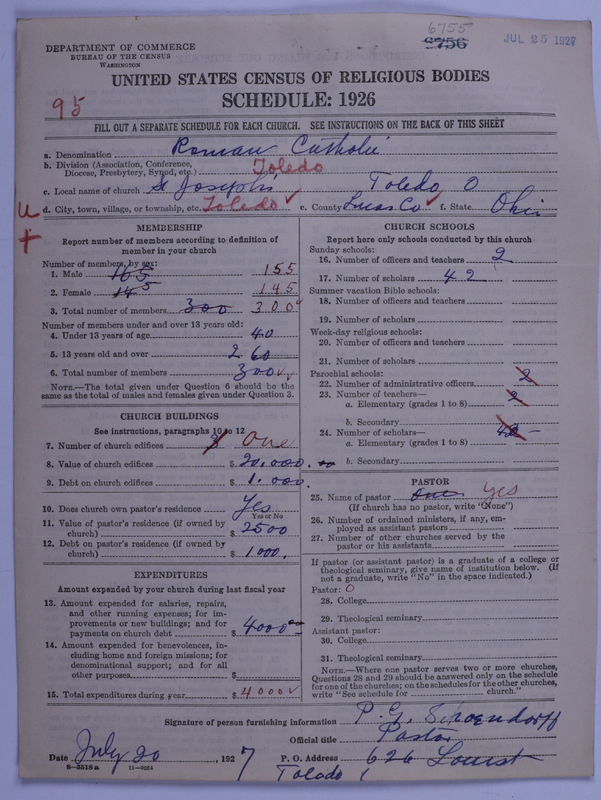 6755
9756
JUL 25 1927
DEPARTMENT OF COMMERCE
BUREAU OF THE CENSUS
WASHINGTON
UNITED STATES CENSUS OF RELIGIOUS BODIES
SCHEDULE: 1926
95
FILL OUT A SEPARATE SCHEDULE FOR EACH CHURCH. SEE INSTRUCTIONS ON THE BACK OF THIS SHEET
a. Denomination Roman Catholic
b. Division (Association, Conference, Diocese, Presbytery, Synod, etc.) Toledo
c. Local name of church St Joseph's Toledo, O
d. City, town, village, or township, etc. Toledo ✓ e. County Lucas Co ✓ f. State Ohio
MEMBERSHIP
Report number of members according to definition of member in your church
Number of members, by sex:
1. Male 165 155
2. Female 145 145
3. Total number of members 300 300
Number of members under and over 13 years old:
4. Under 13 years of age 40
5. 13 years old and over 260
6. Total number of members 300 ✓✓
NOTE.—The total given under Question 6 should be the same as the total of males and females given under Question 3.
CHURCH BUILDINGS
See instructions, paragraphs 10 to 12
7. Number of church edifices One
8. Value of church edifices $ 20.000.
9. Debt on church edifices $ 1.000.
10. Does church own pastor's residence Yes
Yes or No
11. Value of pastor's residence (if owned by church) $ 2500
12. Debt on pastor's residence (if owned by church) $ 1000.
EXPENDITURES
Amount expended by your church during last fiscal year
13. Amount expended for salaries, repairs, and other running expenses; for improvements or new buildings; and for payments on church debt $ 4000
14. Amount expended for benevolences, including home and foreign missions; for denominational support; and for all other purposes $
15. Total expenditures during year $ 4000 ✓
CHURCH SCHOOLS
Report here only schools conducted by this church
Sunday schools:
16. Number of officers and teachers 2
17. Number of scholars 42
Summer vacation Bible schools:
18. Number of officers and teachers
19. Number of scholars
Week-day religious schools:
20. Number of officers and teachers
21. Number of scholars
Parochial schools:
22. Number of administrative officers 2
23. Number of teachers—
a. Elementary (grades 1 to 8) 2
b. Secondary
24. Number of scholars—
a. Elementary (grades 1 to 8) 42 -
b. Secondary
PASTOR
25. Name of pastor One Yes
(If church has no pastor, write "None")
26. Number of ordained ministers, if any, employed as assistant pastors
27. Number of other churches served by the pastor or his assistants
If pastor (or assistant pastor) is a graduate of a college or theological seminary, give name of institution below. (If not a graduate, write "No" in the space indicated.)
Pastor: O
28. College
29. Theological seminary
Assistant pastor:
30. College
31. Theological seminary
NOTE.—Where one pastor serves two or more churches, Questions 28 and 29 should be answered only on the schedule for one of the churches; on the schedules for the other churches, write "See schedule for church."
Signature of person furnishing information P. Schoendorff
Official title Pastor
Date July 20, 1927 P. O. Address 626
Toledo
8—5518a 11—9254